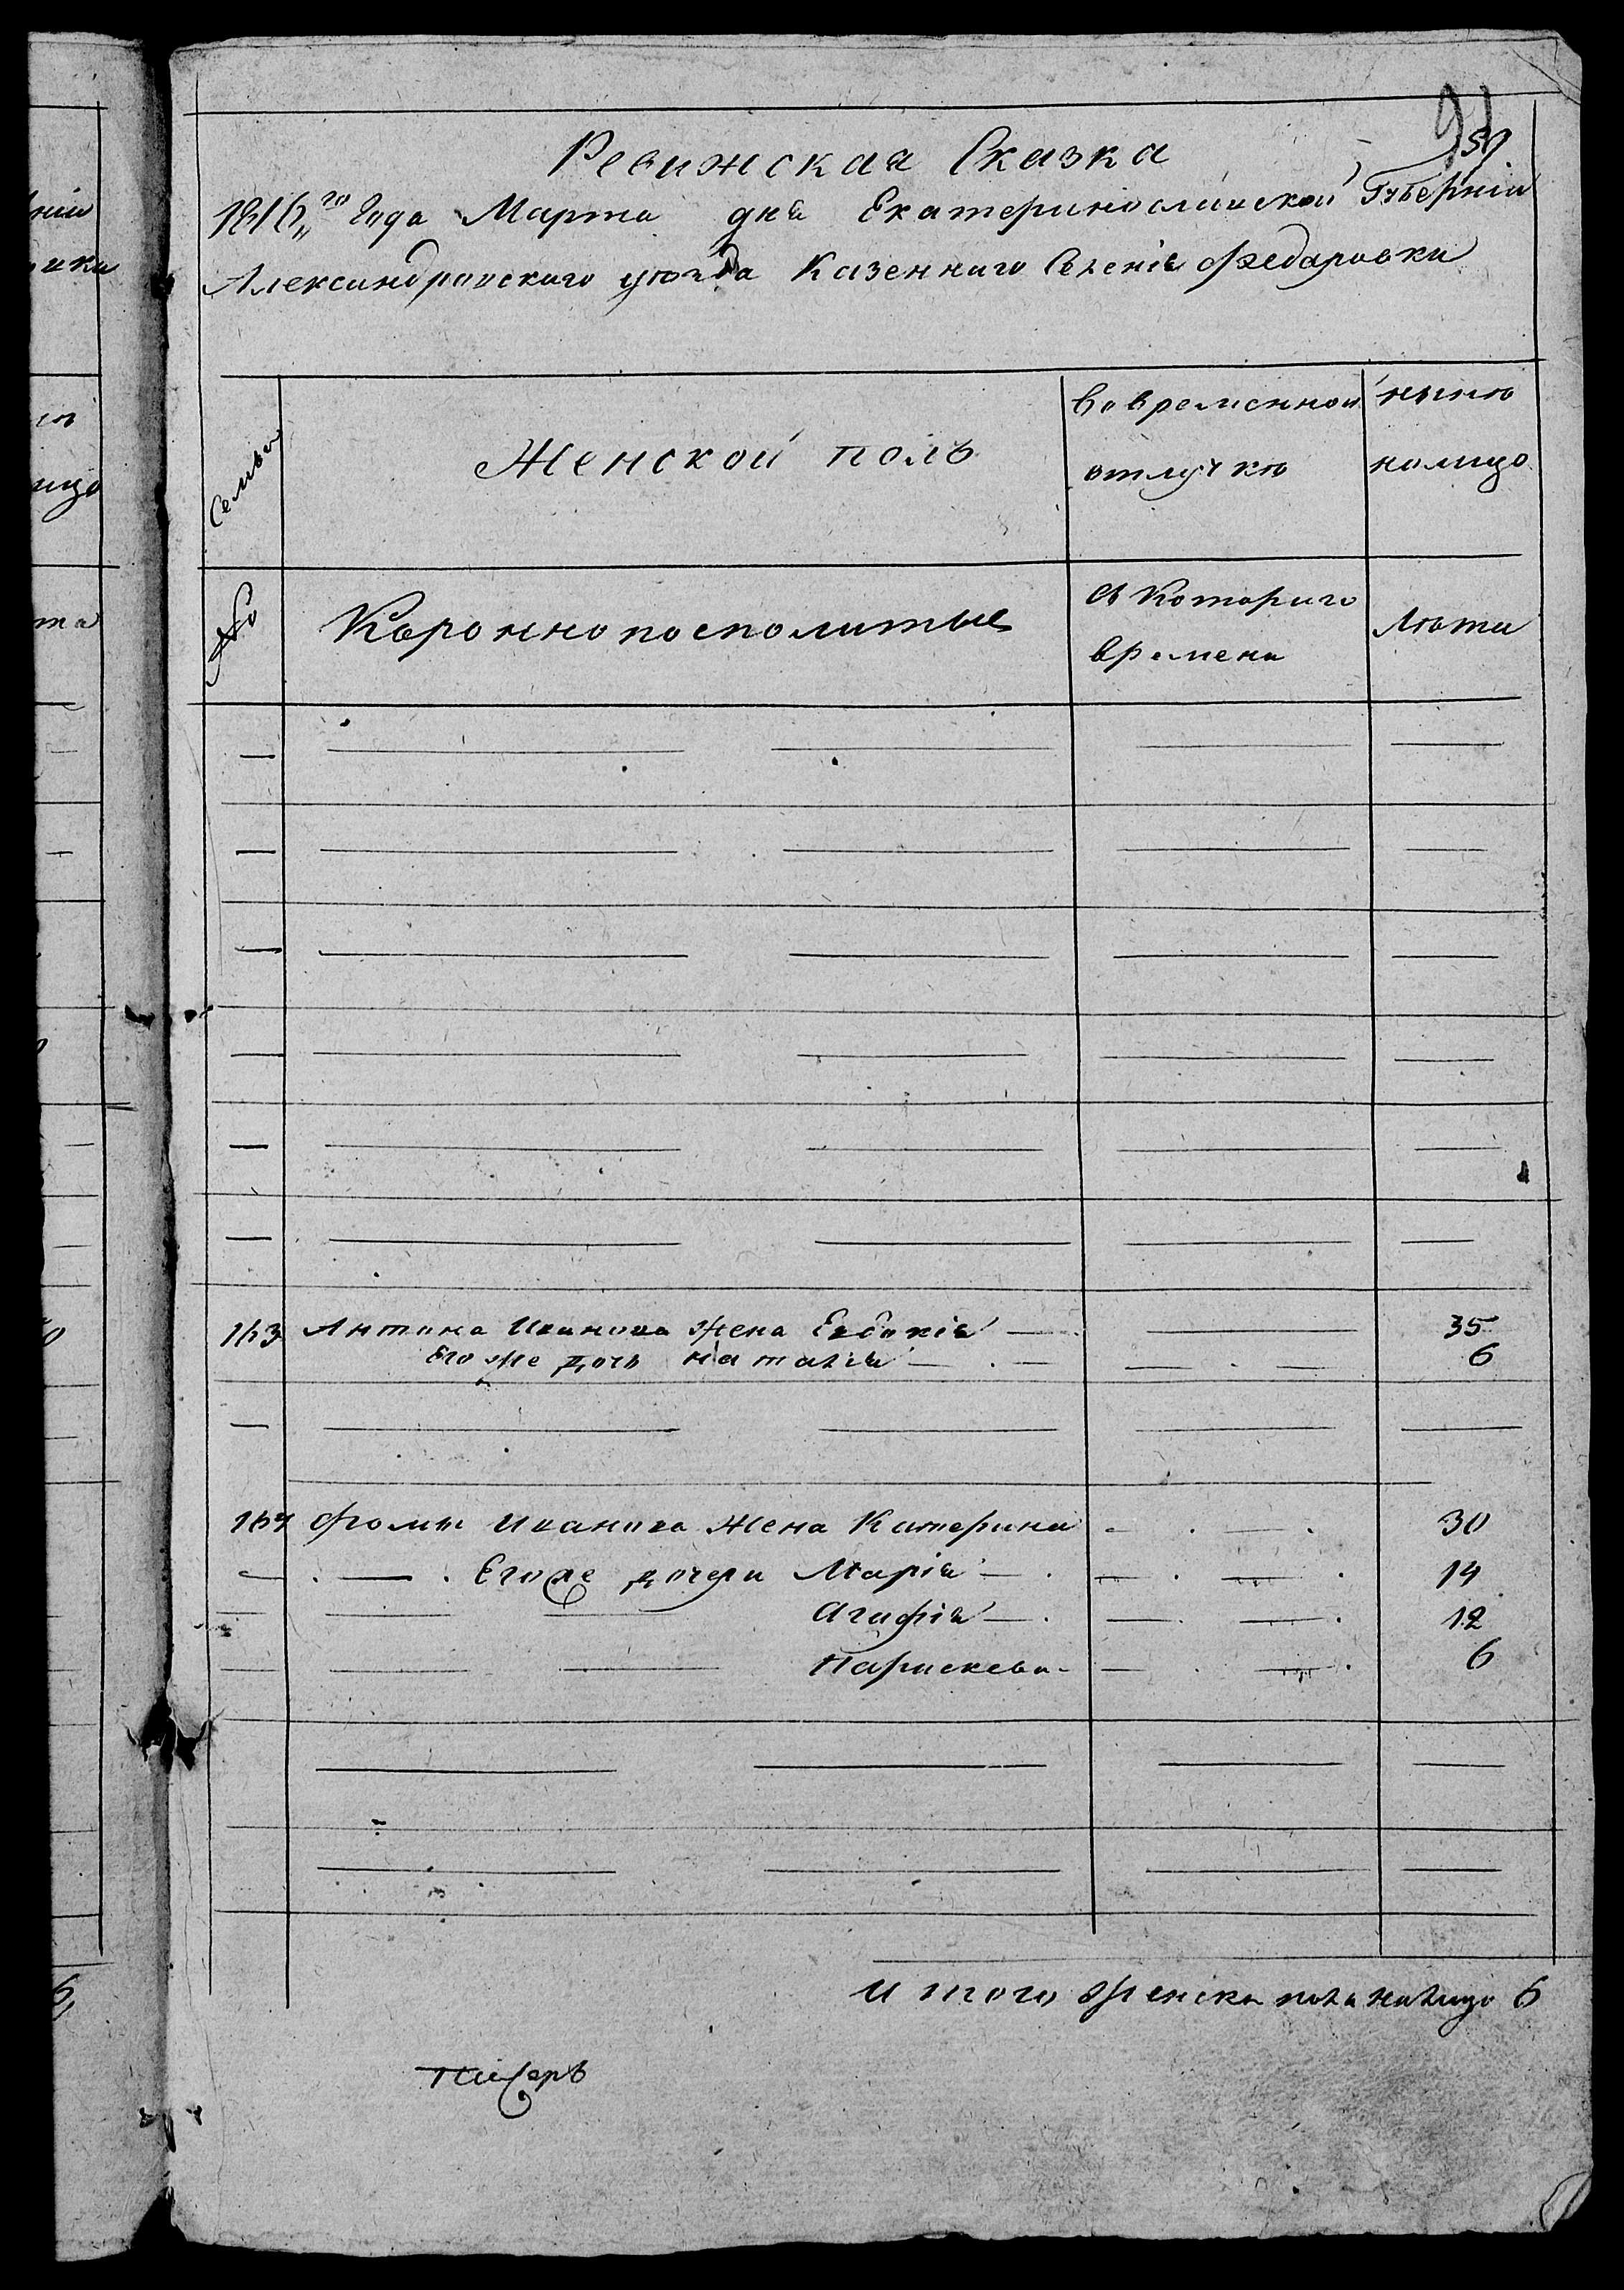 91
59.
Ревижская Сказка
1816„го Года Марта дня Екатеринославской Губерніи
Александровского уѣзда Казенного Селенія Федаровки
Семьи
Женской полъ
Вовременной
отлучкѣ
нынѣ
налицо
№
Коронно посполитые
съ Котораго
времени
Лѣта
163 Антона Иванова Жена Евдокія — — 35
Его же дочь наталія — . — — . — 6
164 Фомы Иванова Жена Катерина — . — . 30
— . — . Егоже дочери Марія — . — . — . 14
— — — Агафія — . — . — . 12
— — — Параскева — — . — . 6
И того женска пола налицо 6
писеръ